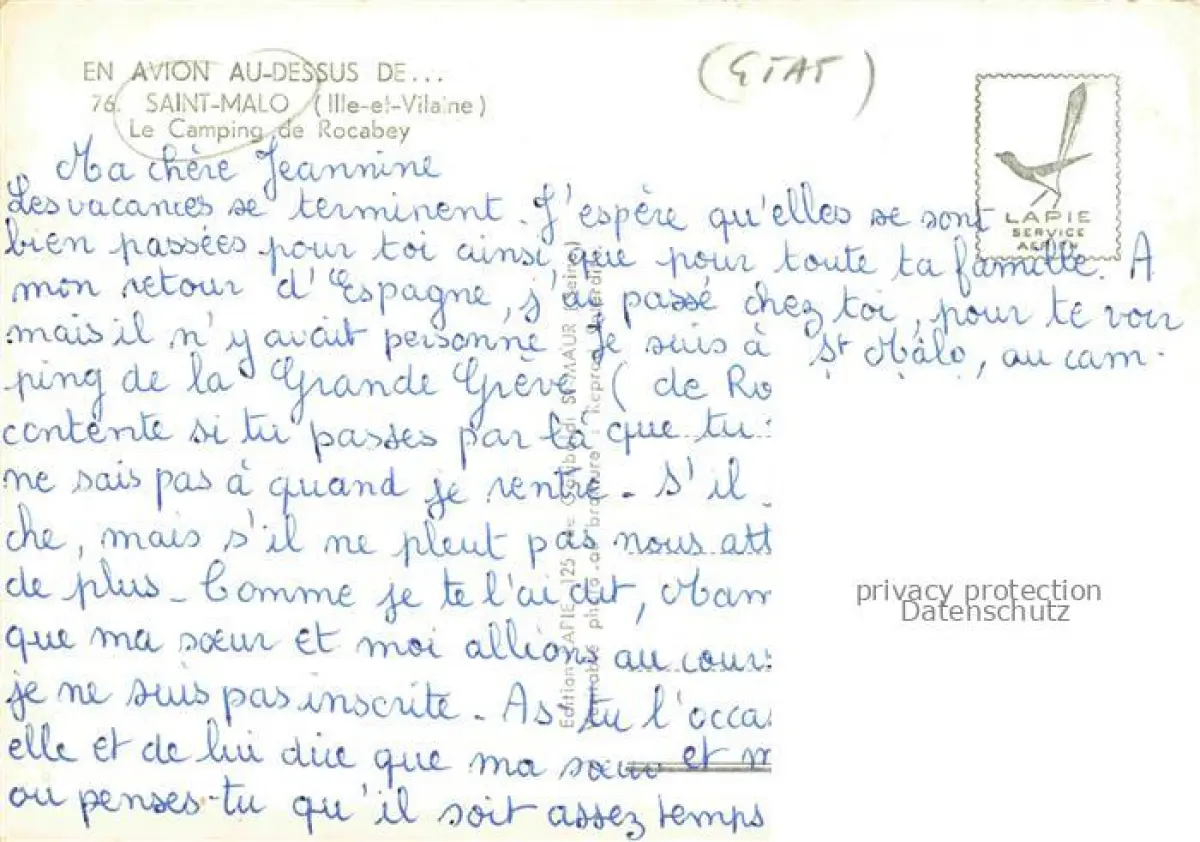 EN AVION AU-DESSUS DE...
76. SAINT-MALO (Ille-et-Vilaine)
Le Camping de Rocabey
(ETAT)
LAPIE
SERVICE
AERIEN
Ma chère Jeannine
Les vacances se terminent. J'espère qu'elles se sont
bien passées pour toi ainsi que pour toute ta famille. A
mon retour d'Espagne, j'ai passé chez toi, pour te voir
mais il n'y avait personne. Je suis à St Mâlo, au cam-
ping de la Grande Grève (de Ro
contente si tu passes par là que tu
ne sais pas à quand je rentre. S'il
che, mais s'il ne pleut pas nous att
de plus. Comme je te l'ai dit, Mam
que ma sœur et moi allions au cours
je ne suis pas inscrite. As-tu l'occa
elle et de lui dire que ma sœur et m
ou penses-tu qu'il soit assez temps
Edition LAPIE 125 St-MAUR (Seine)
Véritable photo au bromure - Reproduction Interdite.
privacy protection
Datenschutz